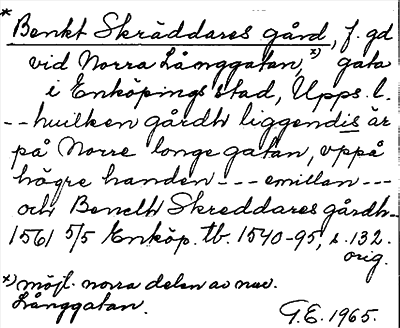 * Benkt Skräddares gård, f. gd
vid Norra Långgatan, x) gata
i Enköpings stad, Upps. l.
-- huilken gårdh liggendis är
på Norre longe gatan, vppå
högre handen --- emillan ---
och Benckt Skreddares gårdh--
1561 5/5 Enköp. tb. 1540-95, s. 132.
orig.
x) möjl. norra delen av nuv.
Långgatan.
G.E. 1965.